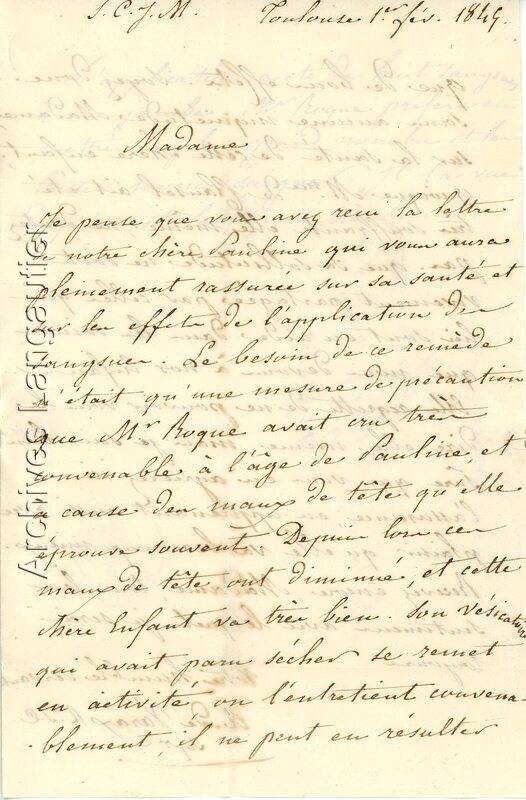 S. C. J. M. Toulouse 1.er fév. 1845.
Madame
Je pense que vous avez reçu la lettre
de notre chère Pauline qui vous aura
pleinement rassurée sur sa santé et
sur les effets de l'application des
sangsues. Le besoin de ce remède
n'était qu'une mesure de précaution
que Mr Roque avait cru très
convenable à l'âge de Pauline, et
à cause des maux de tête qu'elle
éprouve souvent. Depuis lors ces
maux de tête ont diminué, et cette
chère Enfant va très bien. Son vésicatoire
qui avait paru sécher se remet
en activité, on l'entretient convena-
-blement, il ne peut en résulter
Archives Langautier